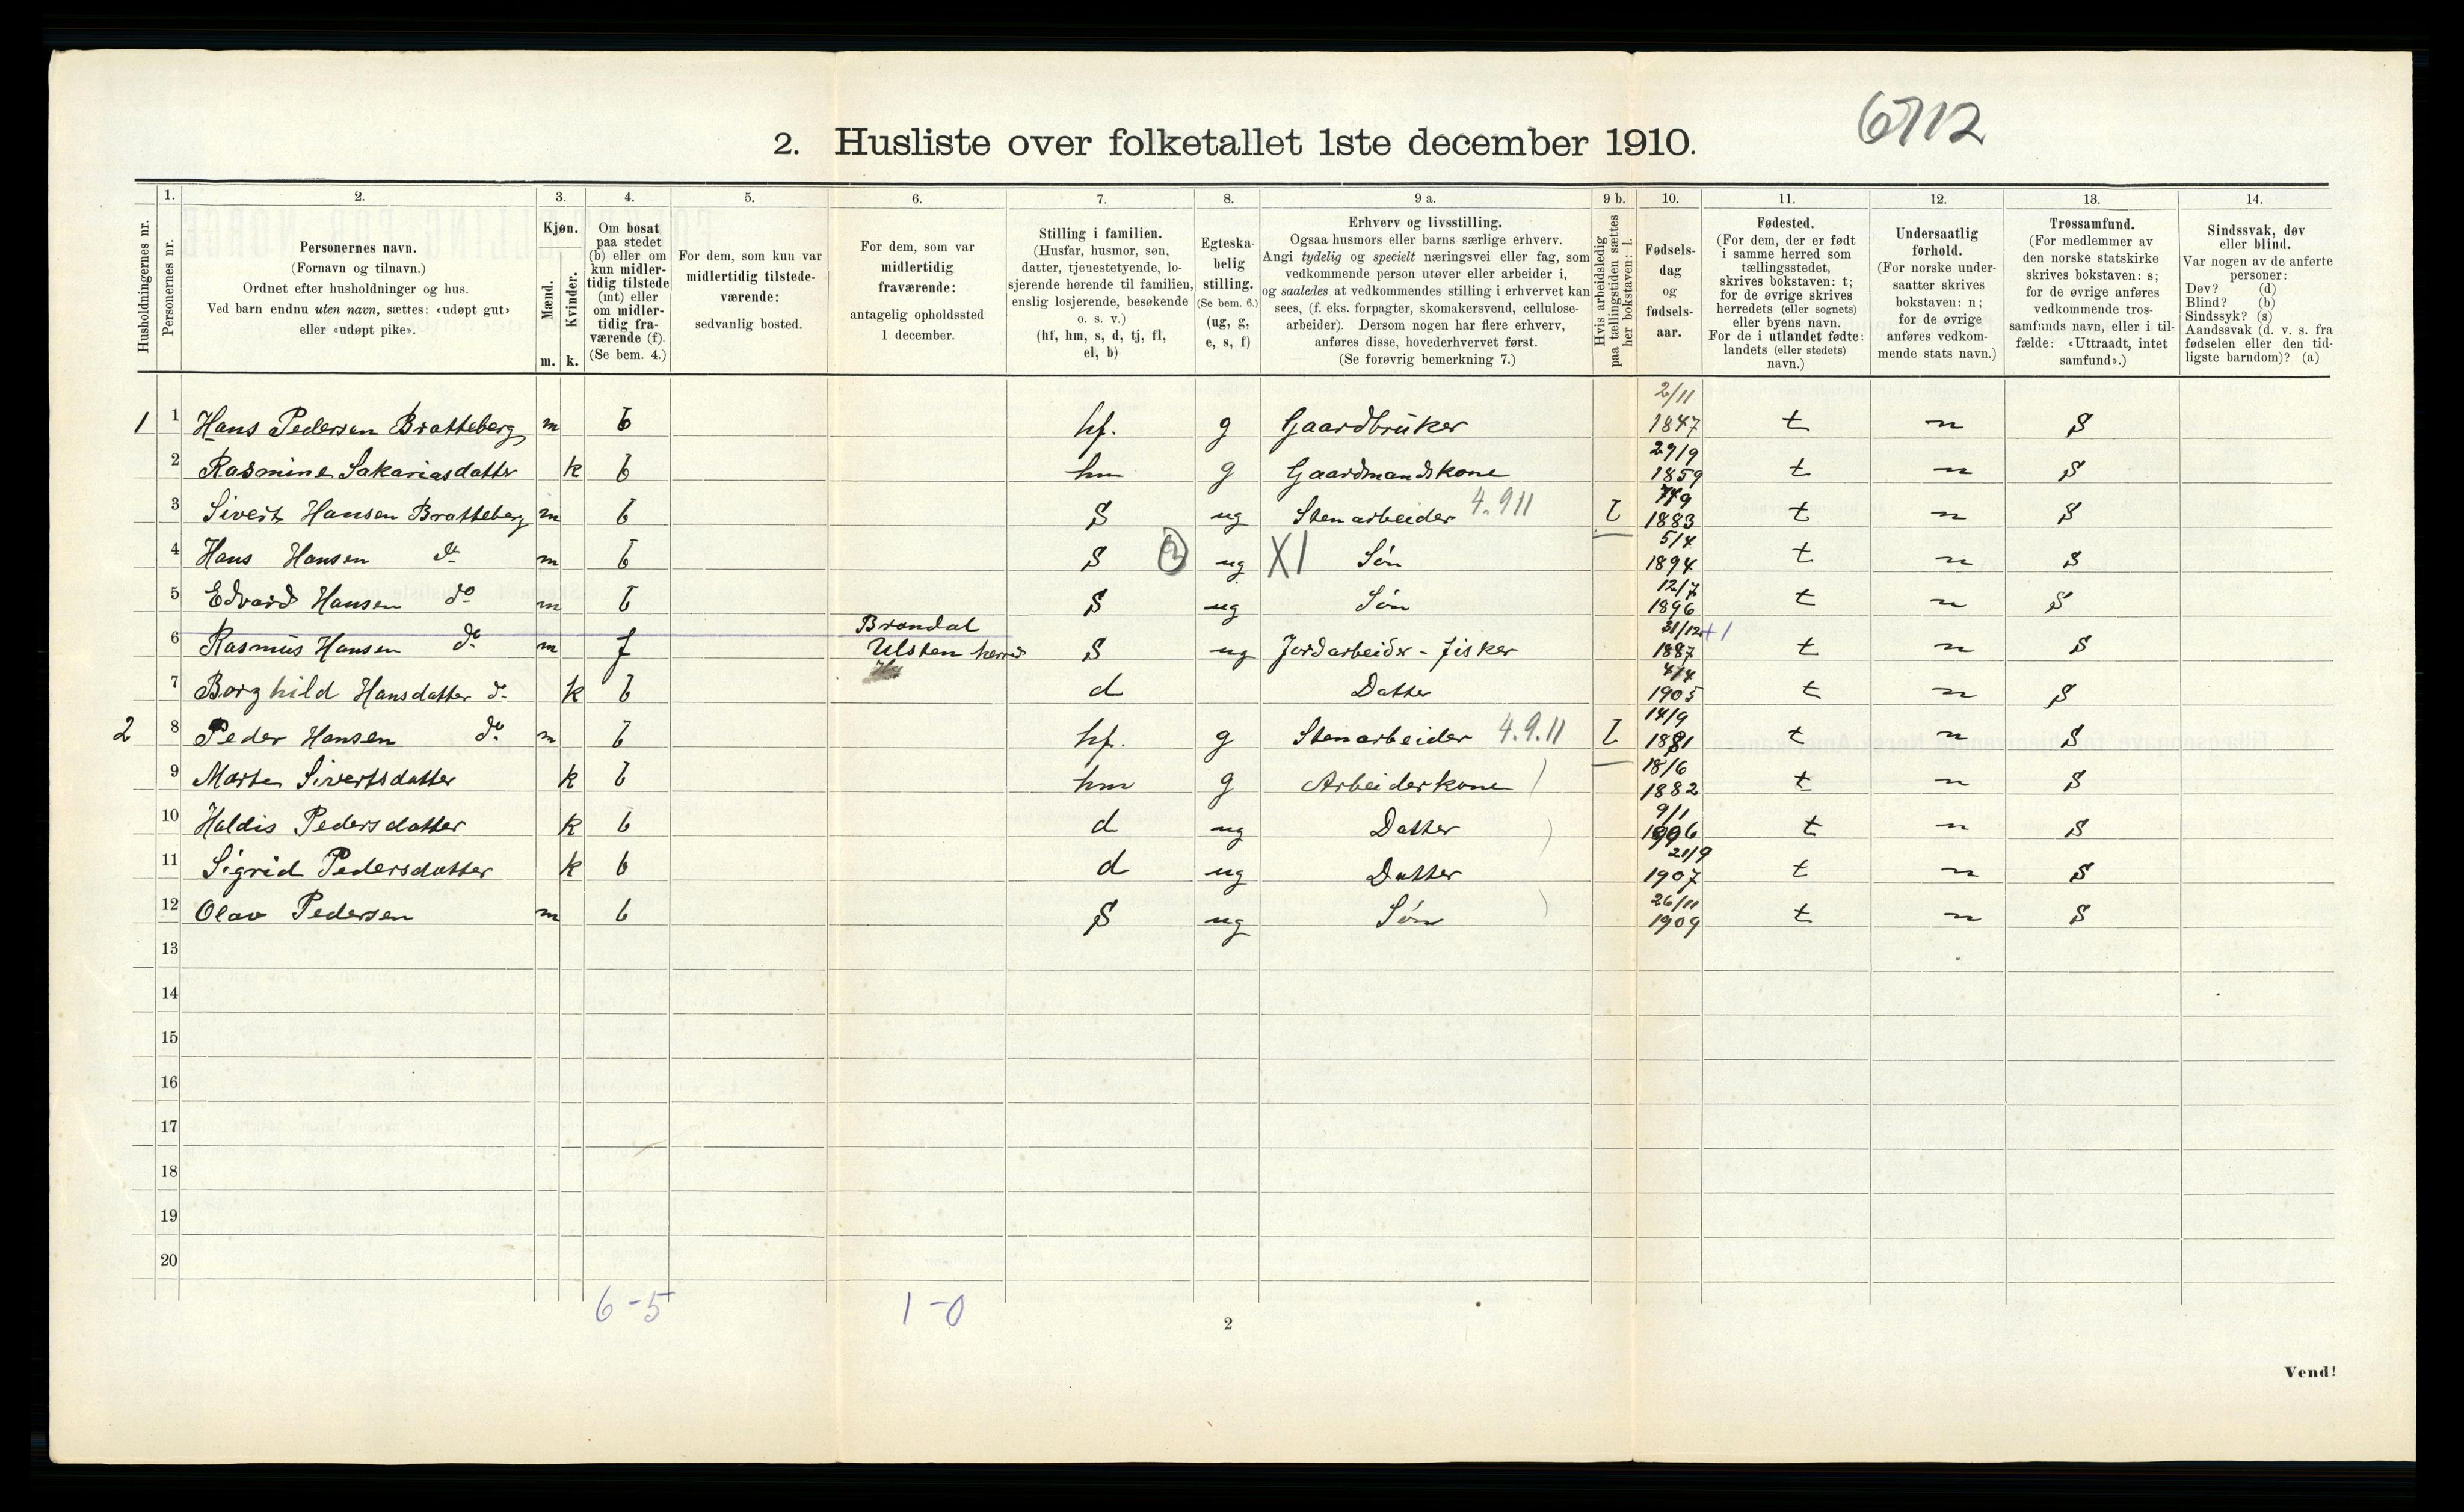 6712
2. Husliste over folketallet 1ste december 1910.
Husholdningernes nr.
1.
Personernes nr.
2.
Personernes navn.
(Fornavn og tilnavn.)
Ordnet efter husholdninger og hus.
Ved barn endnu uten navn, sættes: «udøpt gut»
eller «udøpt pike».
3.
Kjøn.
Mænd.
m.
Kvinder.
k.
4.
Om bosat
paa stedet
(b) eller om
kun midler-
tidig tilstede
(mt) eller
om midler-
tidig fra-
værende (f).
(Se bem. 4.)
5.
For dem, som kun var
midlertidig tilstede-
værende:
sedvanlig bosted.
6.
For dem, som var
midlertidig
fraværende:
antagelig opholdssted
1 december.
7.
Stilling i familien.
(Husfar, husmor, søn,
datter, tjenestetyende, lo-
sjerende hørende til familien,
enslig losjerende, besøkende
o. s. v.)
(hf, hm, s, d, tj, fl,
el, b)
8.
Egteska-
belig
stilling.
(Se bem. 6.)
(ug, g,
e, s, f)
9 a.
Erhverv og livsstilling.
Ogsaa husmors eller barns særlige erhverv.
Angi tydelig og specielt næringsvei eller fag, som
vedkommende person utøver eller arbeider i,
og saaledes at vedkommendes stilling i erhvervet kan
sees, (f. eks. forpagter, skomakersvend, cellulose-
arbeider). Dersom nogen har flere erhverv,
anføres disse, hovederhvervet først.
(Se forøvrig bemerkning 7.)
9 b.
Hvis arbeidsledig
paa tællingstiden sættes
her bokstaven: l.
10.
Fødsels-
dag
og
fødsels-
aar.
11.
Fødested.
(For dem, der er født
i samme herred som
tællingsstedet,
skrives bokstaven: t;
for de øvrige skrives
herredets (eller sognets)
eller byens navn.
For de i utlandet fødte:
landets (eller stedets)
navn.)
12.
Undersaatlig
forhold.
(For norske under-
saatter skrives
bokstaven: n;
for de øvrige
anføres vedkom-
mende stats navn.)
13.
Trossamfund.
(For medlemmer av
den norske statskirke
skrives bokstaven: s;
for de øvrige anføres
vedkommende tros-
samfunds navn, eller i til-
fælde: «Uttraadt, intet
samfund».)
14.
Sindssvak, døv
eller blind.
Var nogen av de anførte
personer:
Døv? (d)
Blind? (b)
Sindssyk? (s)
Aandssvak (d. v. s. fra
fødselen eller den tid-
ligste barndom)? (a)
1 1 Hans Pedersen Bratteberg m b hf. g Gaardbruker 2/11 1847 t n s
2 Rasmine Sakariasdatter k b hm g Gaardmandskone 29/9 1859 t n s
3 Sivert Hansen Bratteberg m b s ug Stenarbeider 4.9.11 l 1883 t n s
4 Hans Hansen do m b s ug X1 Søn 5/4 1894 t n s
5 Edvard Hansen do m b s ug Søn 12/7 1896 t n s
6 Rasmus Hansen do m f Brandal Ulsten herred s ug Jordarbeider - fisker 31/12 +1 1887 t n s
7 Borghild Hansdatter do k b d Datter 4/4 1905 t n s
2 8 Peder Hansen do m b hf. g Stenarbeider 4.9.11 l 14/9 1881 t n s
9 Marte Sivertsdatter k b hm g Arbeiderkone 18/6 1882 t n s
10 Haldis Pedersdatter k b d ug Datter 9/1 1906 t n s
11 Sigrid Pedersdatter k b d ug Datter 21/9 1907 t n s
12 Olav Pedersen m b s ug Søn 26/11 1909 t n s
13
14
15
16
17
18
19
20
6-5 1-0
2
Vend!